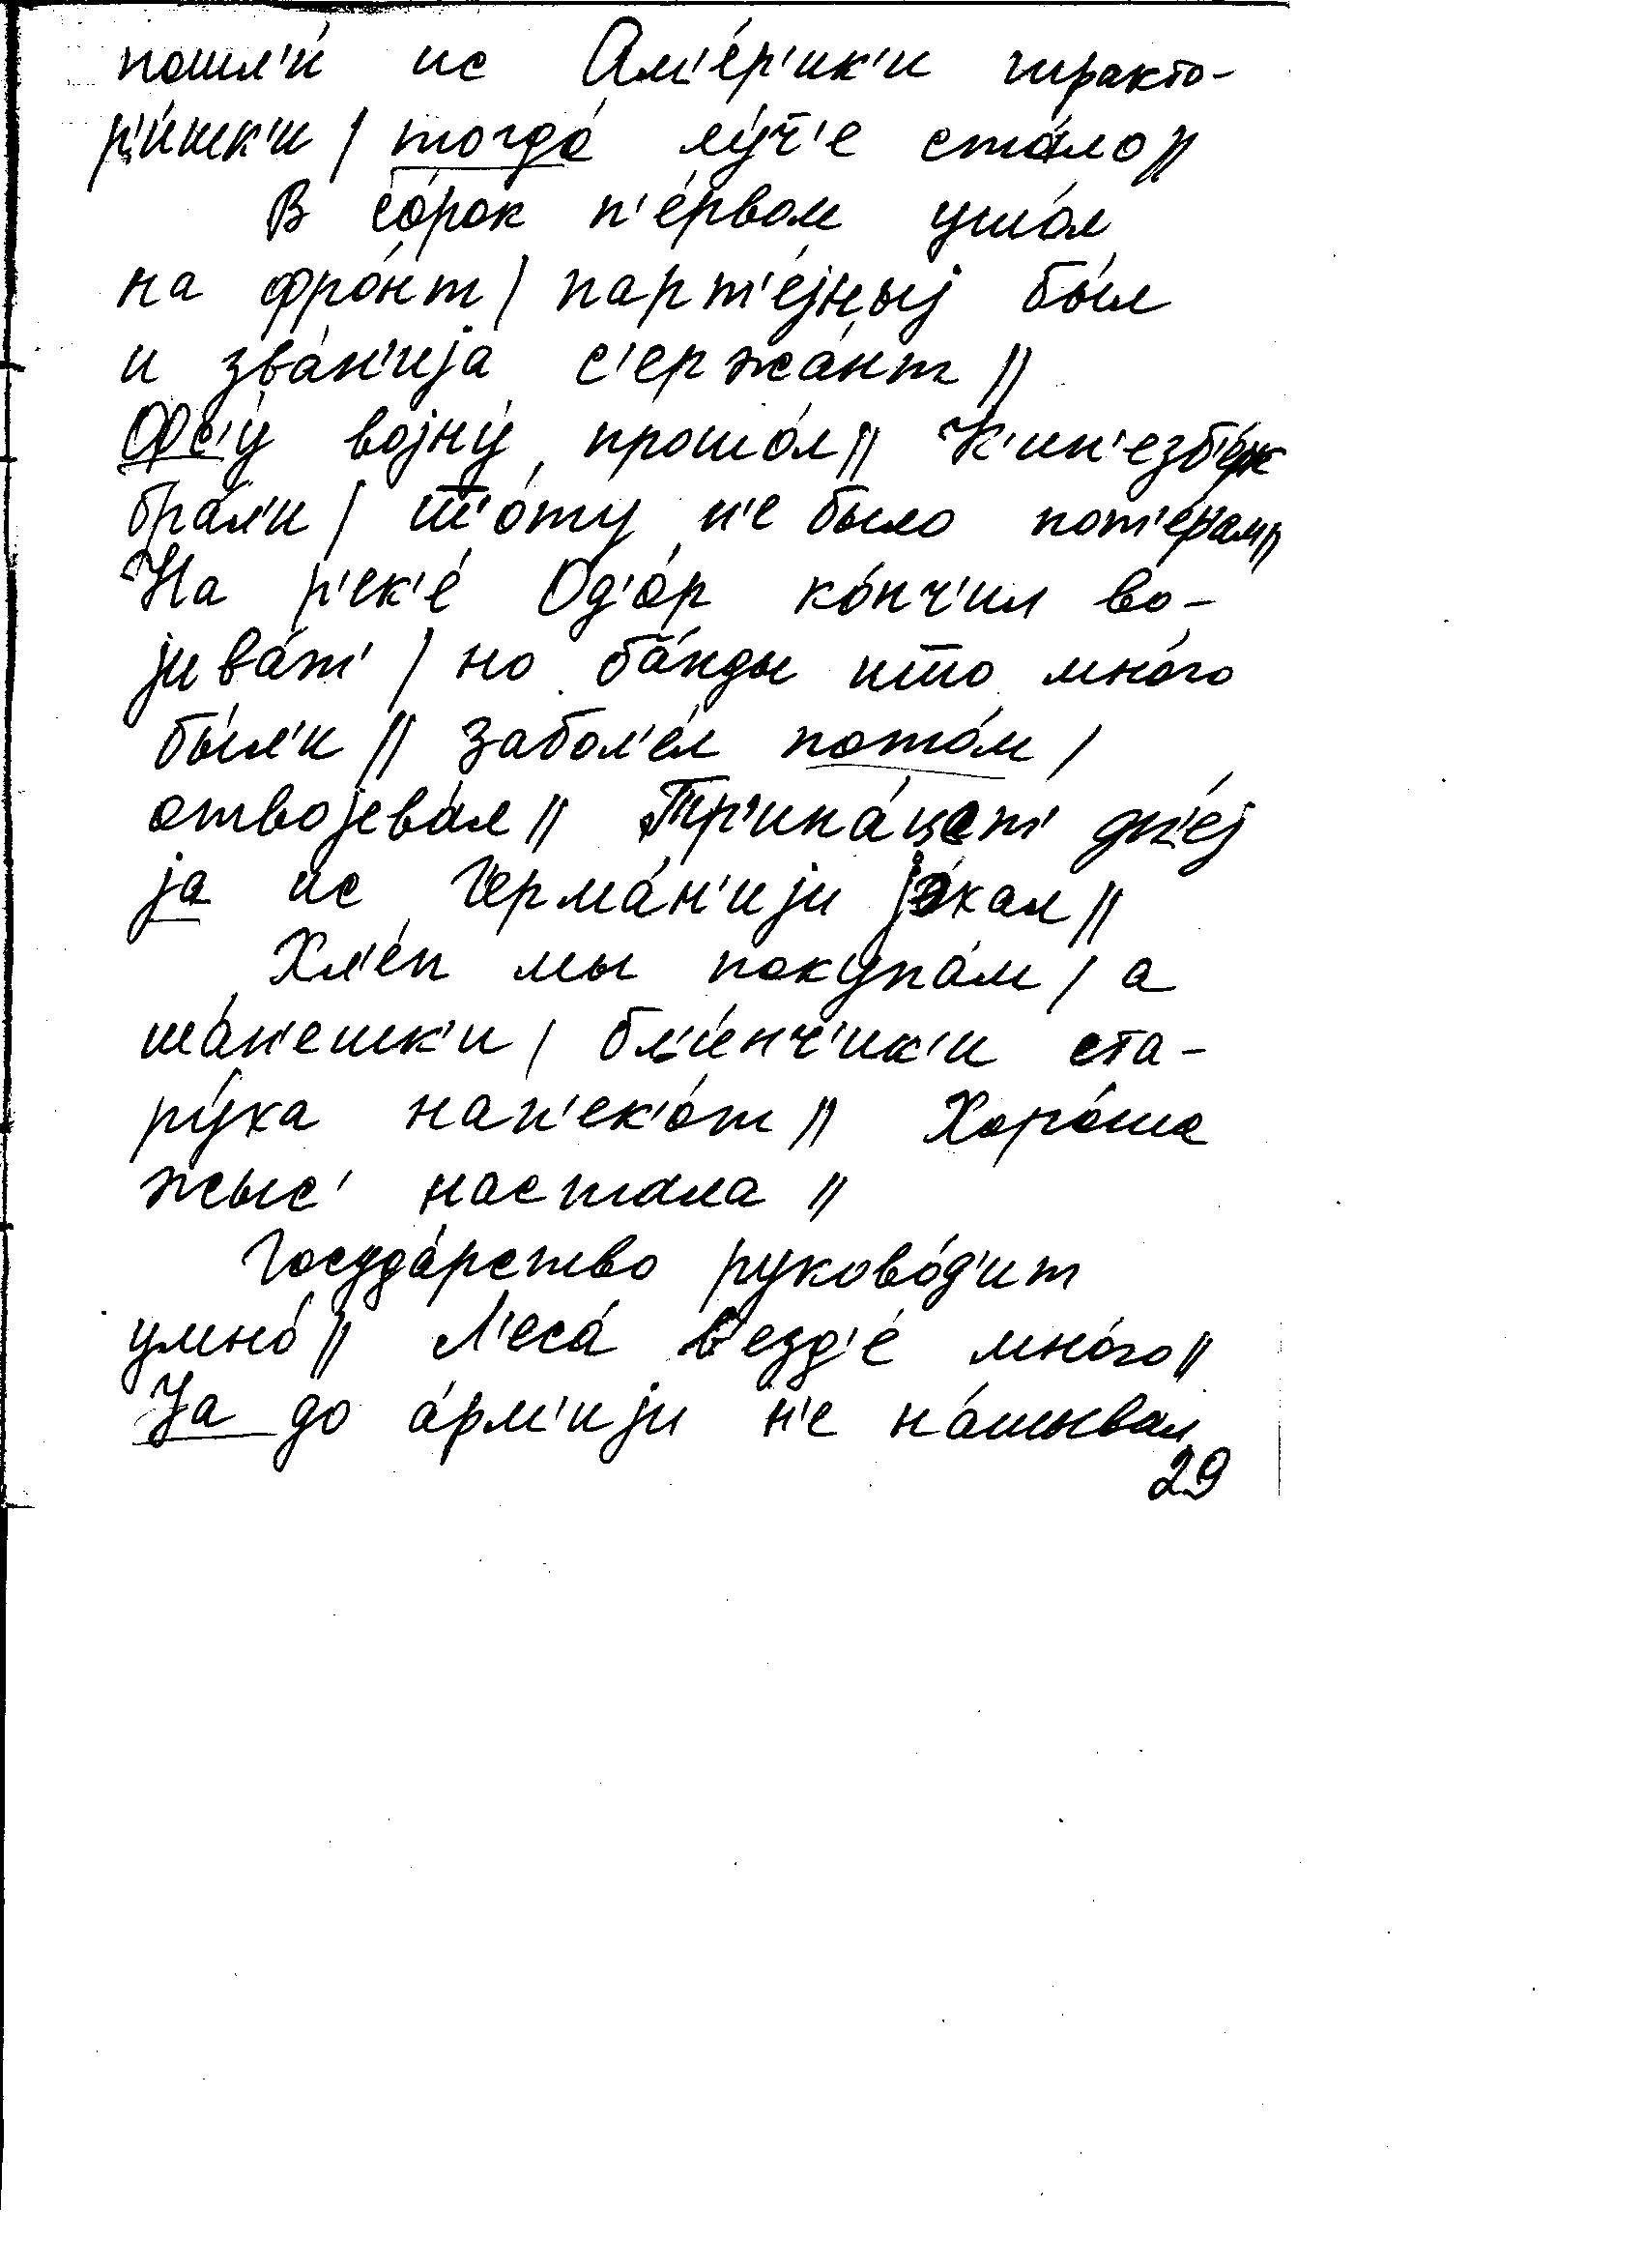 пошл'и́ ис Ам'е́р'ик'и тракто-
р'и́шк'и / тогда́ лу́ч'е ста́ло //
В со́рок п'е́рвом ушо́л
на фро́нт / парт'е́јныј бы́л
и зва́н'ија с'ержа́нт //
Офс'у́ војну́ прошо́л // К'ин'езб'е́рк
бра́л'и / ш'о́ту н'е было пот'е́рам //
На р'ек'е́ Од'о́р ко́нч'ил во-
јива́т' / но ба́нды што мно́го
бы́л'и // забол'е́л пото́м /
отвојева́л // Тр'ина́цет' дн'е́ј
ја ис Герма́н'ији је́хал //
Хл'е́п мы покупа́м / а
ша́н'ешк'и / бл'и́нч'ик'и ста-
ру́ха нап'ек'о́т // Хоро́ша
жыс' настала //
Госуда́рство руково́д'ит
умно́ // Л'еса́ в'езд'е́ мно́го //
Ја до а́рм'ији н'е на́шывал
29